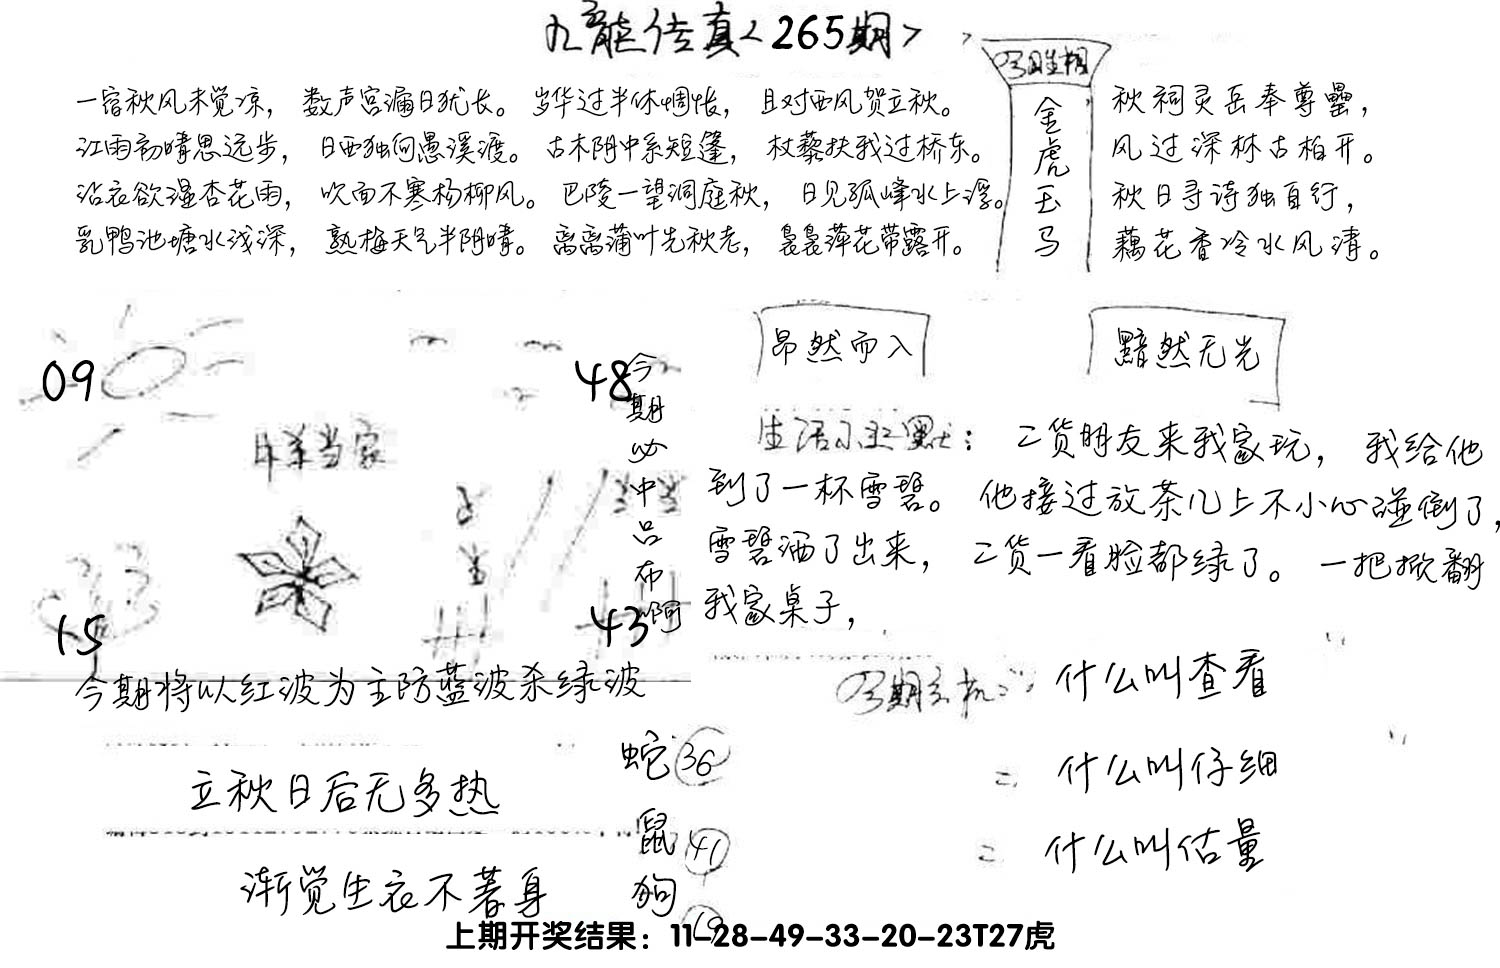 九龙传真<265期>
一宿秋风未觉凉，数声宫漏日犹长。岁华过半休惆怅，且对西风贺立秋。
江雨初晴思远步，日西独向愚溪渡。古木阴中系短篷，杖藜扶我过桥东。
沾衣欲湿杏花雨，吹面不寒杨柳风。巴陵一望洞庭秋，日见孤峰水上浮。
乳鸭池塘水浅深，熟梅天气半阴晴。离离蒲叶先秋老，袅袅萍花带露开。
金虎玉马
秋祠灵岳奉尊罍，
风过深林古柏开。
秋日寻诗独自行，
藕花香冷水风清。
09
48
15
43
今期必中吕布啊
昂然而入
黯然无光
生活小幽默：二货朋友来我家玩，我给他
到了一杯雪碧。他接过放茶几上不小心碰倒了，
雪碧洒了出来，二货一看脸都绿了。一把掀翻
我家桌子，
今期将以红波为主防蓝波杀绿波
立秋日后无多热
渐觉生衣不著身
蛇36
鼠41
狗19
今期玄机：什么叫查看
二 什么叫仔细
二 什么叫估量
上期开奖结果：11-28-49-33-20-23T27虎